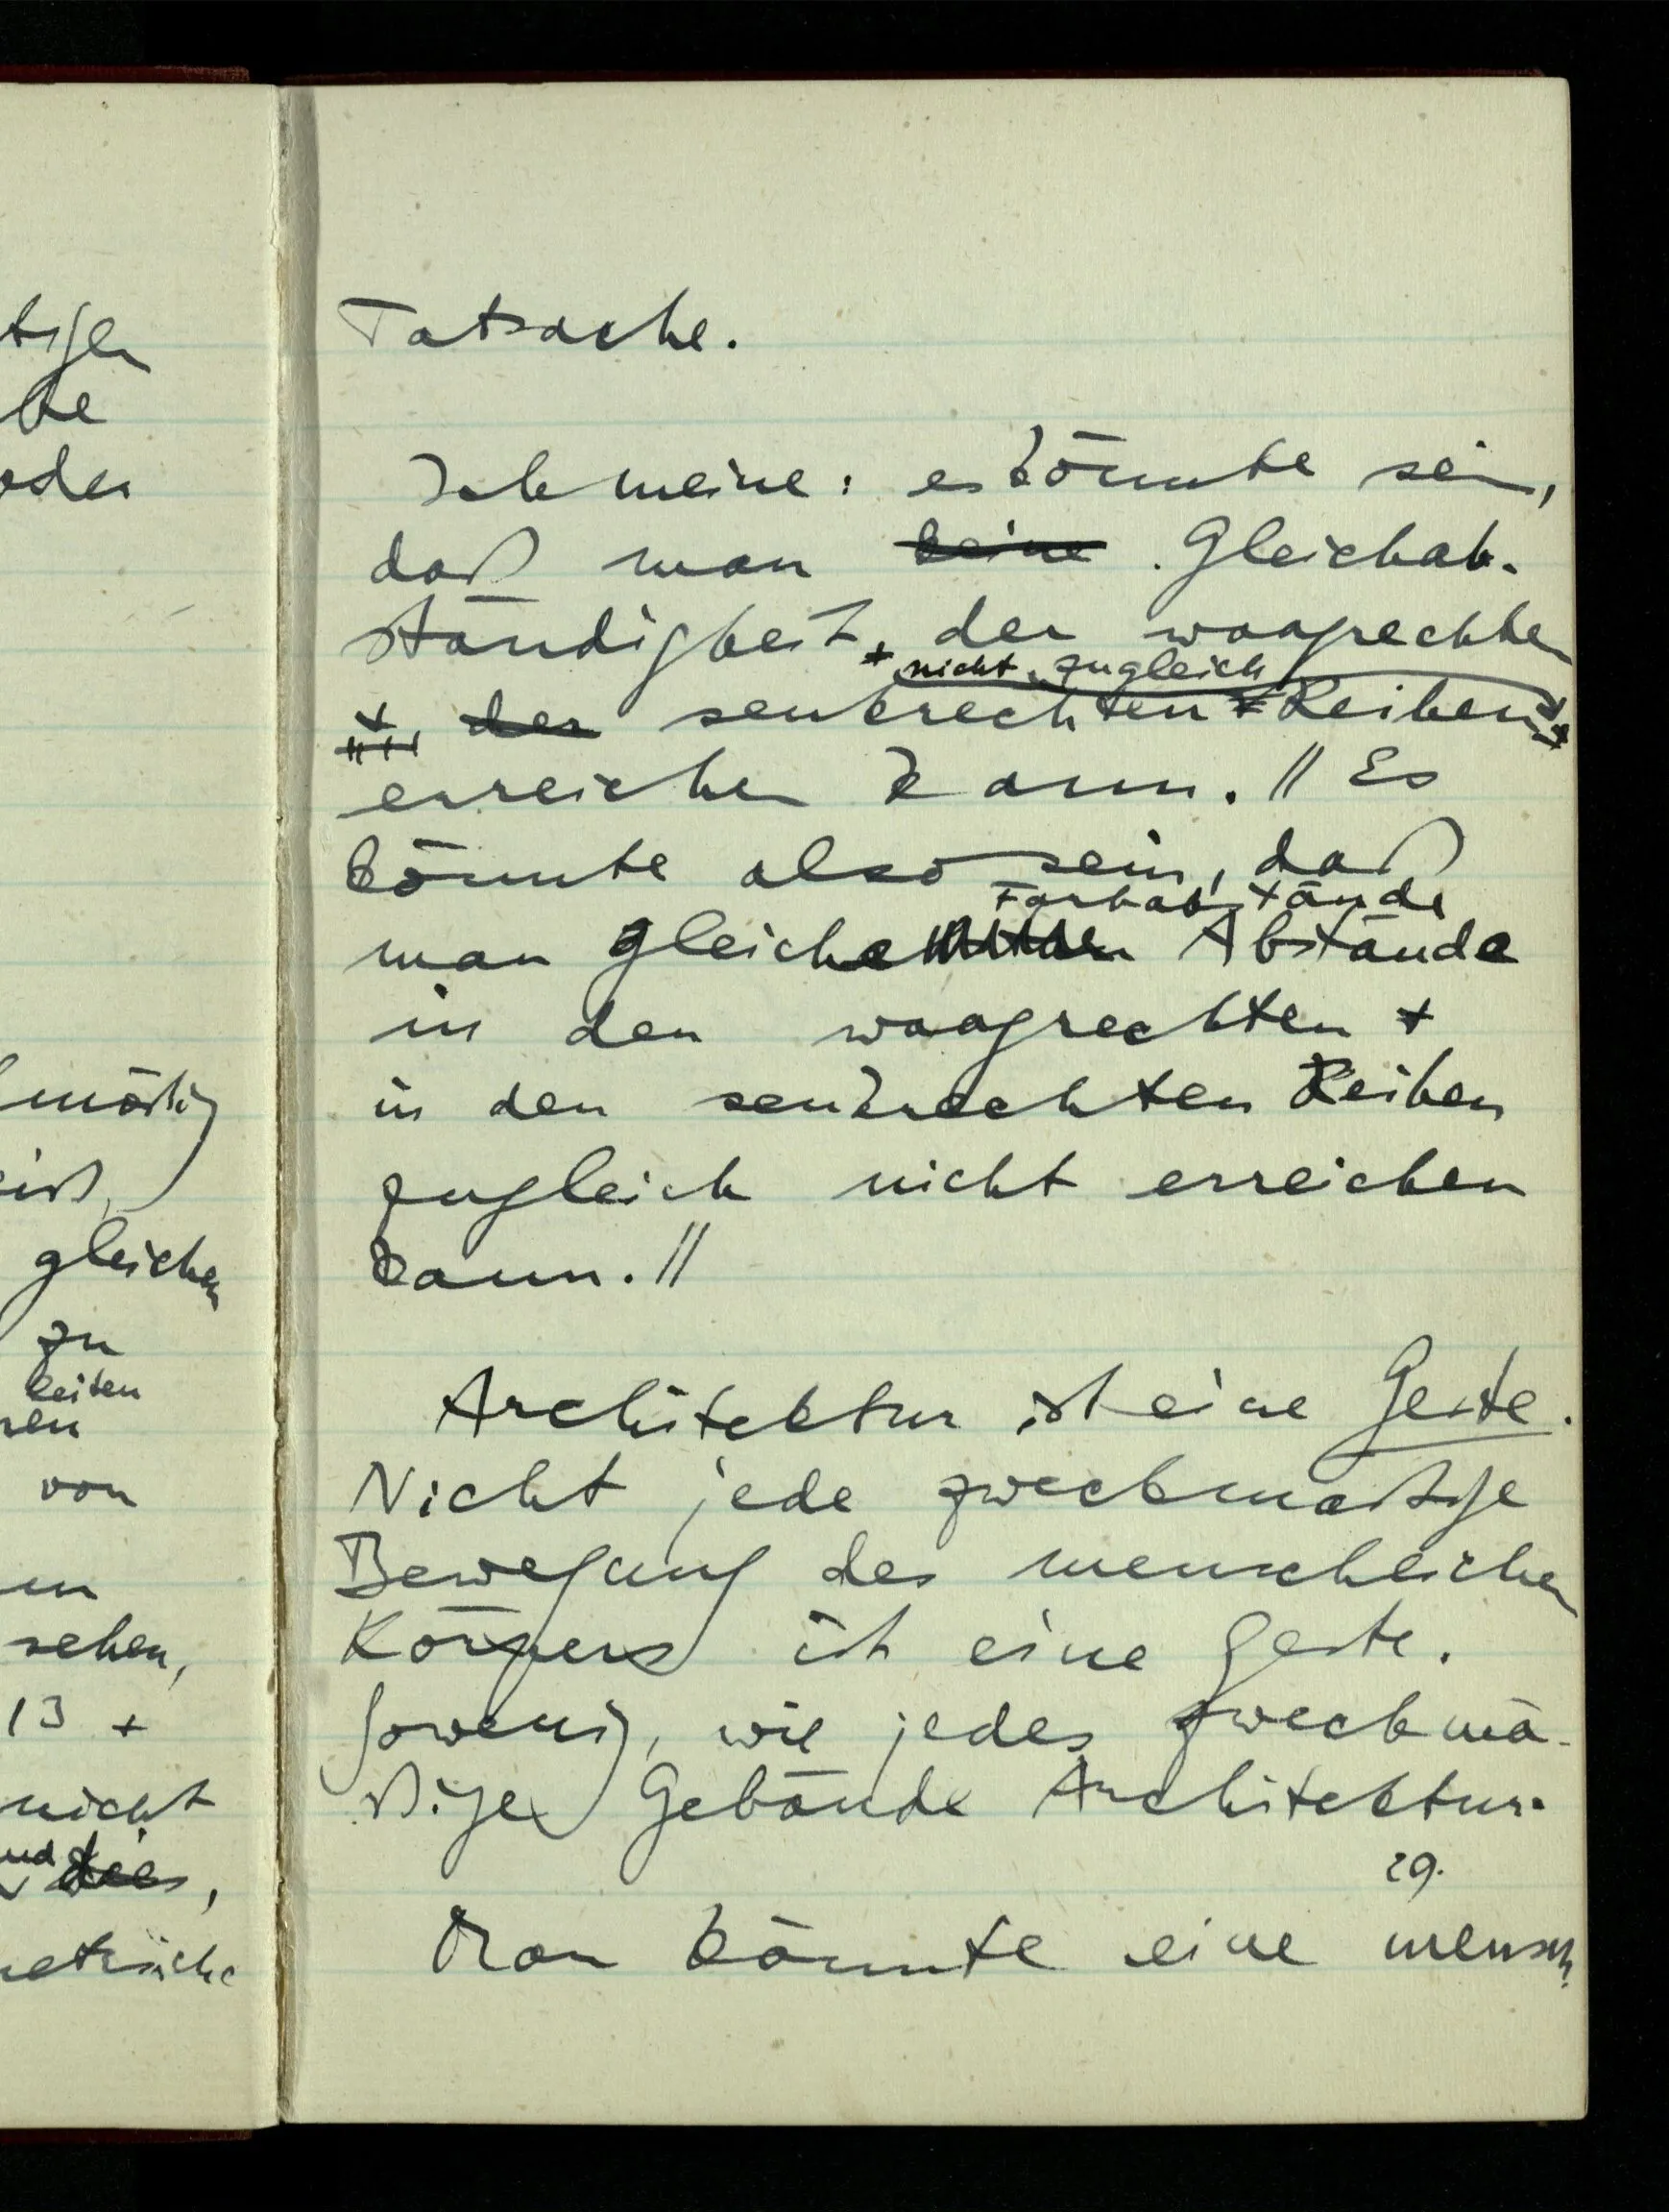 tigen
be
oder
mäßig
gleichen
zu
leiten
ren
von
sehen,
13 +
nicht
und dies,
Tatsache.
Ich meine: es könnte sein,
daß man keine Gleichab-
ständigkeit, der waagrechten
+ nicht zugleich
+ der senkrechten + Reihen
erreichen kann. // Es
könnte also sein, daß
Farbabstände
man gleiche Abstände
in den waagrechten +
in den senkrechten Reihen
zugleich nicht erreichen
kann. //
Architektur ist eine Geste.
Nicht jede zweckmäßige
Bewegung des menschlichen
Körpers ist eine Geste.
Sowenig, wie jedes zweckmä-
ßige Gebäude Architektur.
29.
Man könnte eine mensch